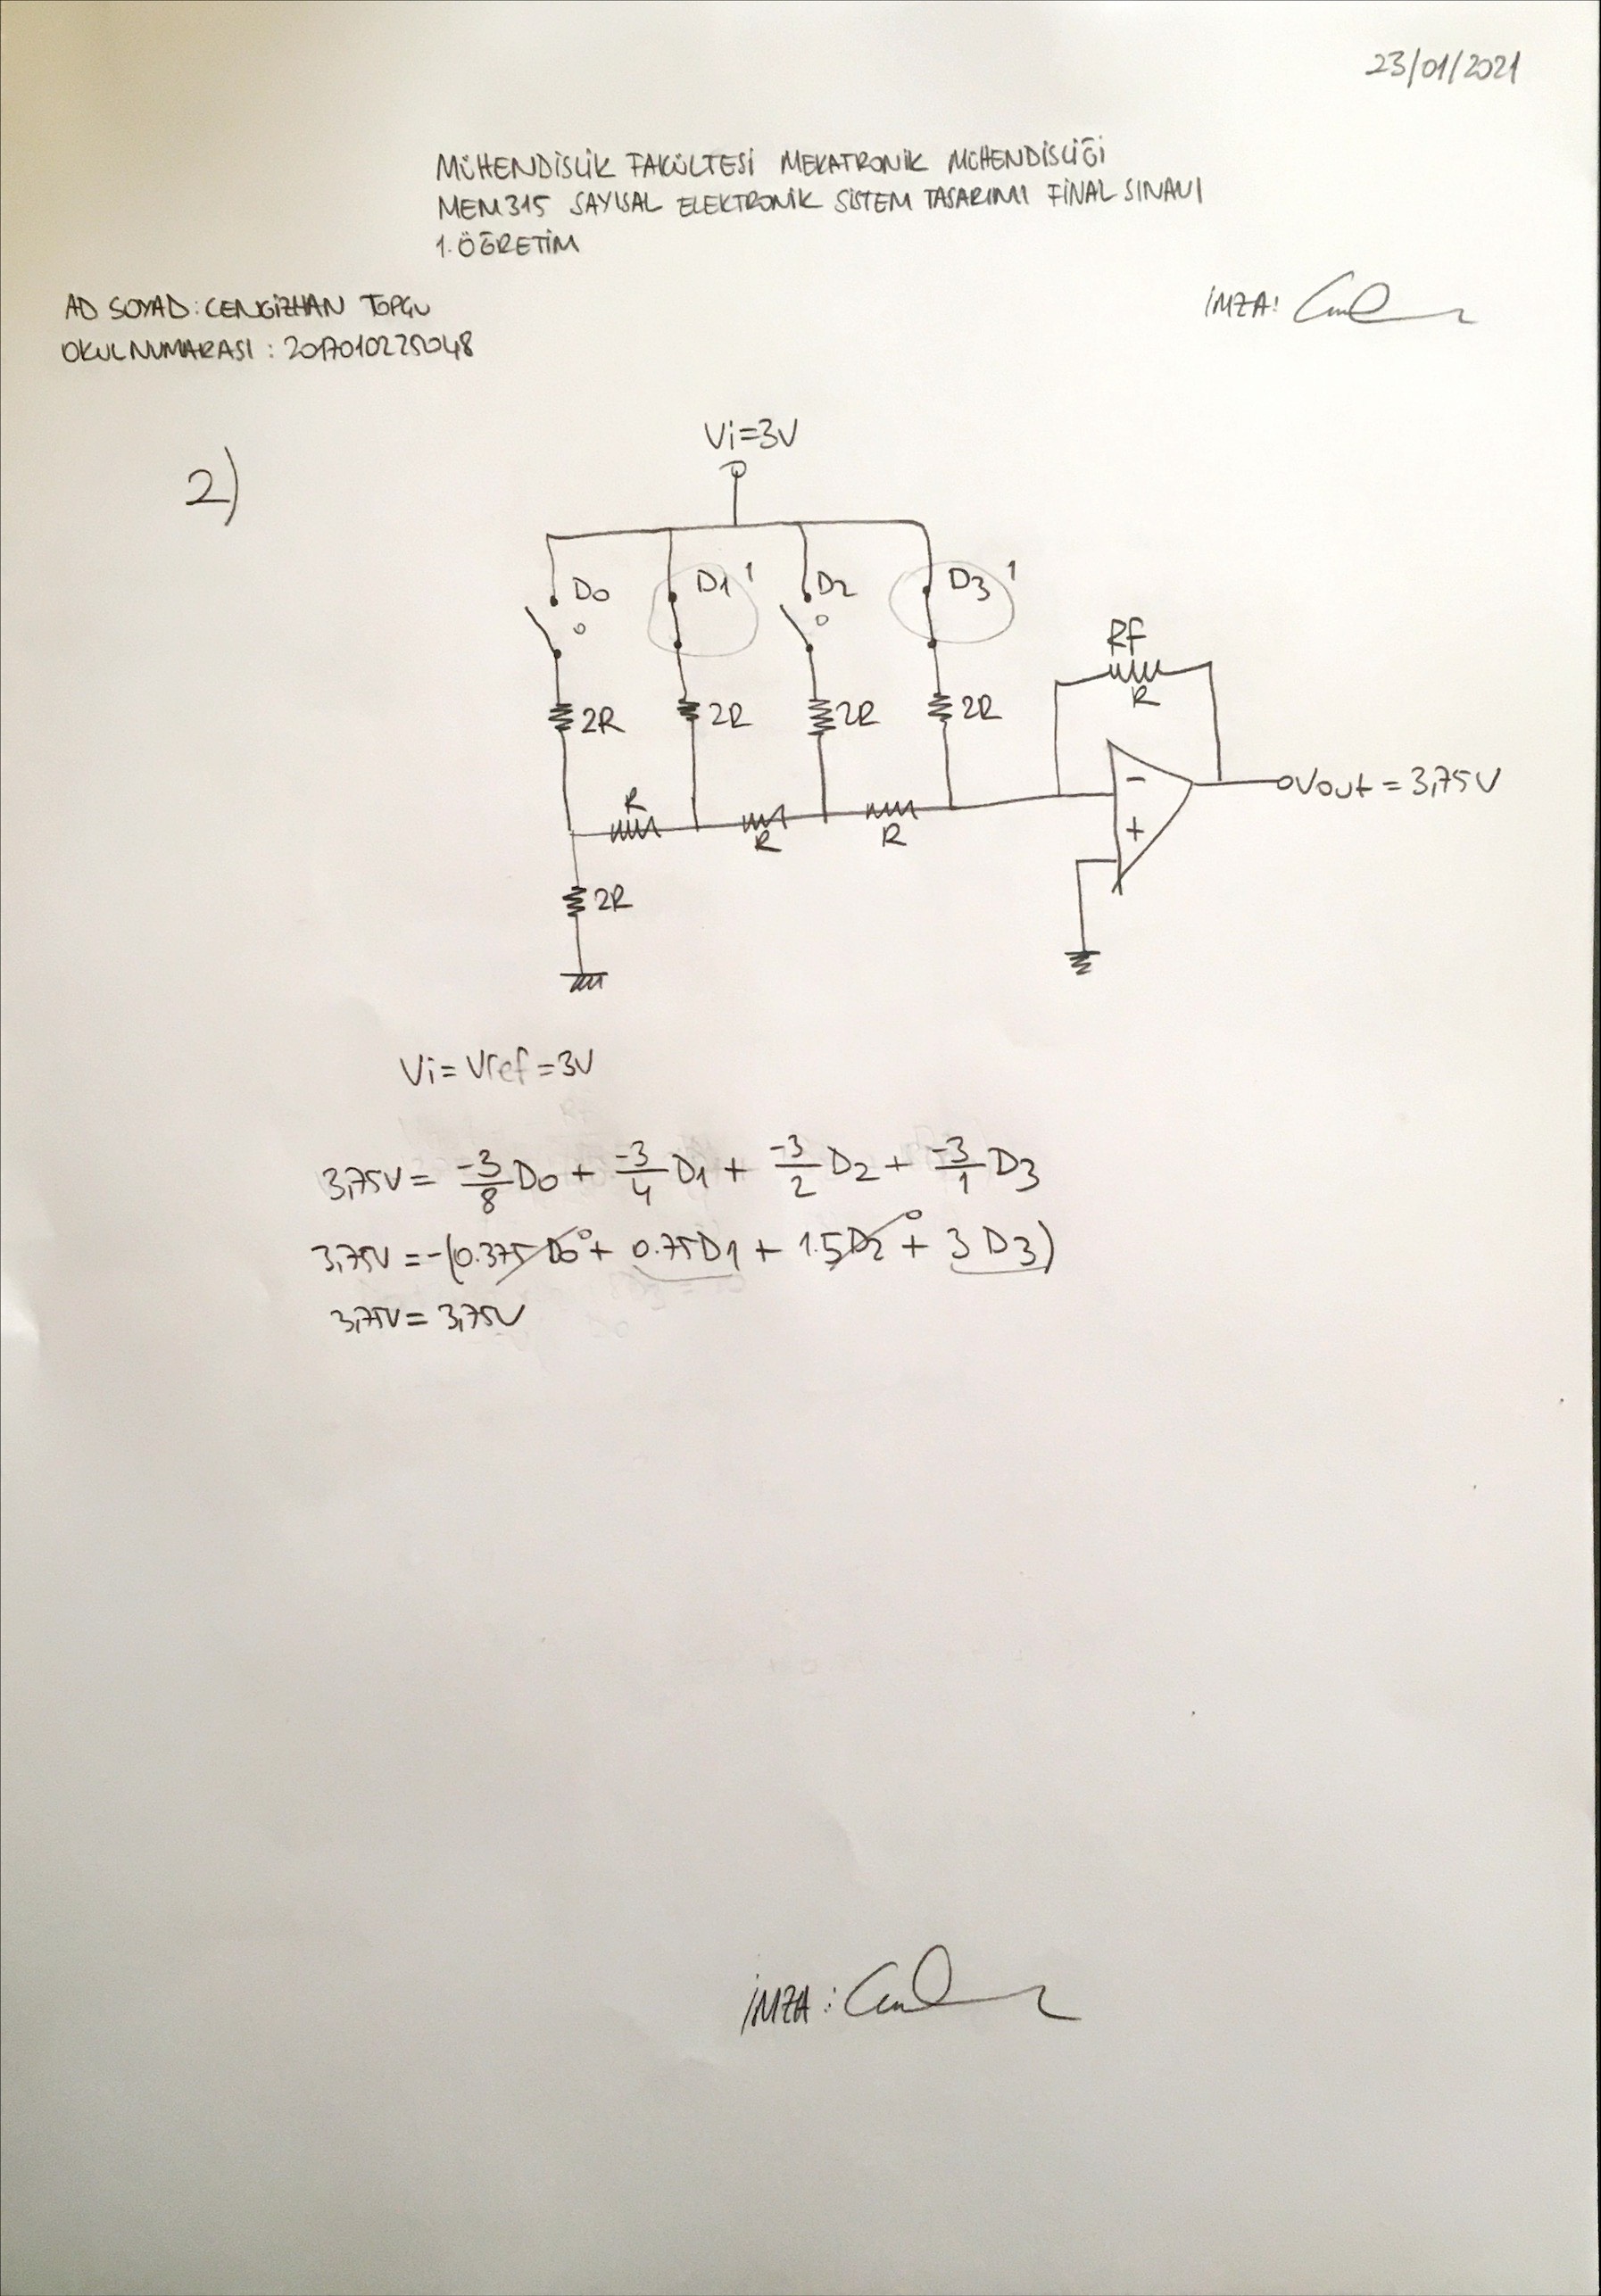 23/01/2021
MÜHENDİSLİK FAKÜLTESİ MEKATRONİK MÜHENDİSLİĞİ
MEM315 SAYISAL ELEKTRONİK SİSTEM TASARIMI FİNAL SINAVI
1. ÖĞRETİM
AD SOYAD: CENGİZHAN TOPÇU
İMZA:
OKUL NUMARASI : 2017010225048
2)
Vi=3V
D0 0
D1 1
D2 0
D3 1
2R 2R 2R 2R
Rf
R
R R R
- +
Vout = 3,75V
2R
Vi = Vref = 3V
3,75V = -3/8 D0 + -3/4 D1 + -3/2 D2 + -3/1 D3
3,75V = -(0.375 D0 0 + 0.75D1 + 1.5D2 0 + 3 D3)
3,75V = 3,75V
İMZA :